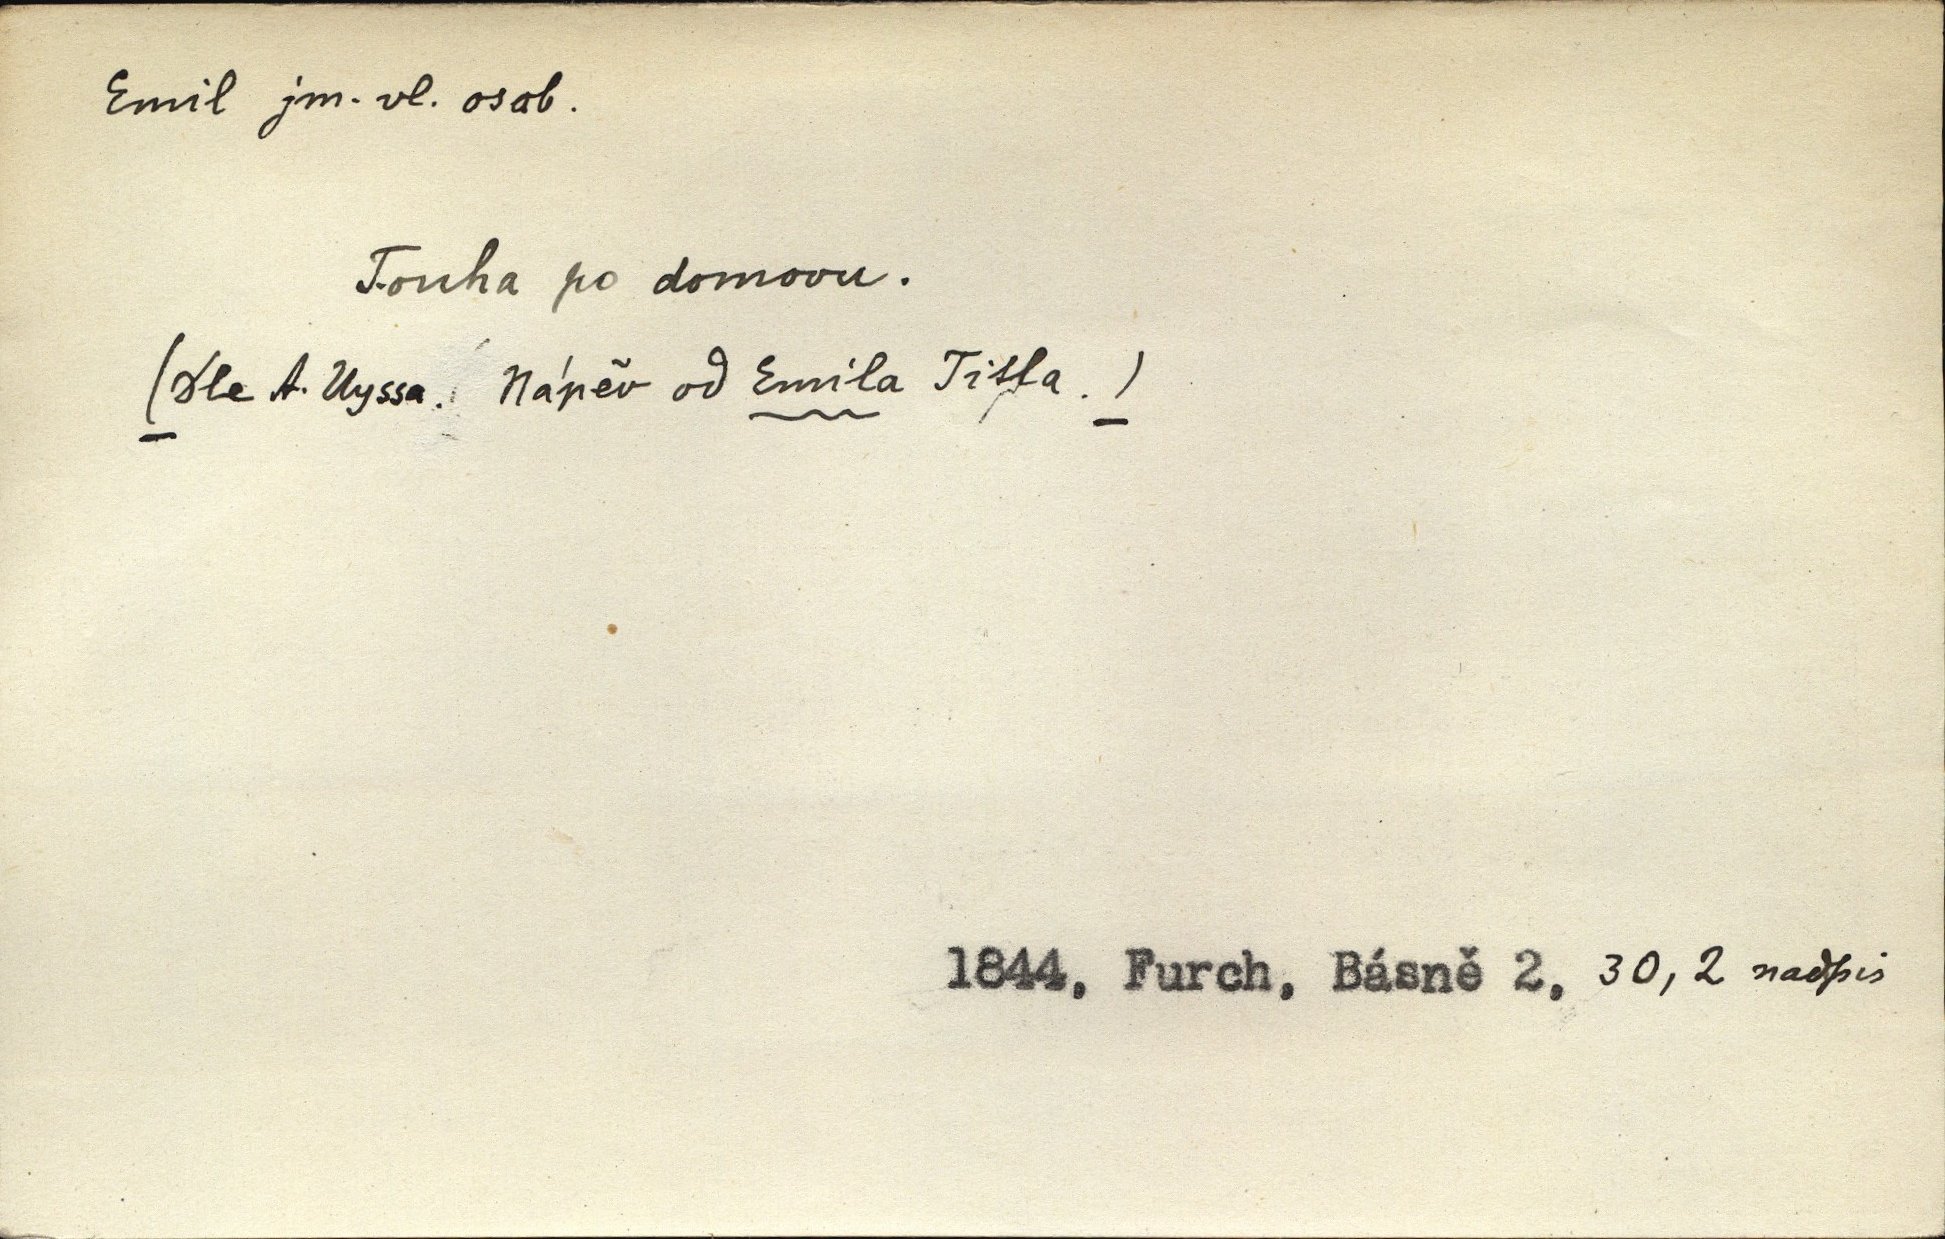 Emil jm. vl. osob.
Touha po domovu.
(Dle A. Uyssa. Nápěv od Emila Titla.)
1844, Furch, Básně 2, 30, 2 nadpis